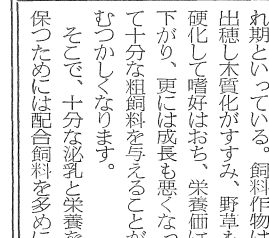 れ期といっている。飼料作物は
出穂し木質化がすすみ、野草も
硬化して嗜好はおち、栄養価に
下がり、更には成長も悪くなっ
て十分な粗飼料を与えることが
むつかしくなります。
そこで、十分な泌乳と栄養を
保つためには配合飼料を多めに